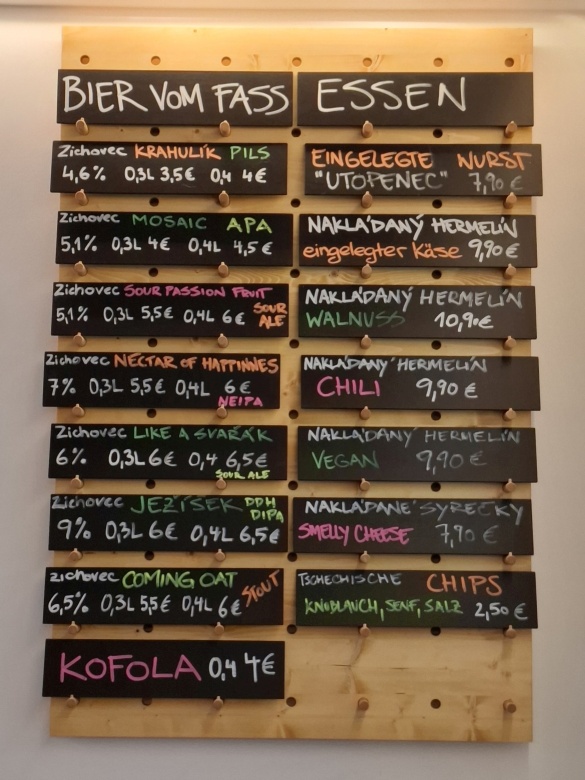 BIER VOM FASS
Zichovec KRAHULÍK PILS
4,6% 0,3L 3,5€ 0,4 4€
Zichovec MOSAIC APA
5,1% 0,3L 4€ 0,4L 4,5€
Zichovec SOUR PASSION FRUIT
5,1% 0,3L 5,5€ 0,4L 6€ SOUR ALE
Zichovec NECTAR OF HAPPINNES
7% 0,3L 5,5€ 0,4L 6€
NEIPA
Zichovec LIKE A SVAŘÁK
6% 0,3L 6€ 0,4 6,5€
SOUR ALE
Zichovec JEŽÍŠEK DDH DIPA
9% 0,3L 6€ 0,4L 6,5€
Zichovec COMING OAT STOUT
6,5% 0,3L 5,5€ 0,4L 6€
KOFOLA 0,4 4€
ESSEN
EINGELEGTE WURST
"UTOPENEC" 7,90€
NAKLÁDANÝ HERMELÍN
eingelegter Käse 9,90€
NAKLÁDANÝ HERMELÍN
WALNUSS 10,90€
NAKLÁDANÝ HERMELÍN
CHILI 9,90€
NAKLÁDANÝ HERMELÍN
VEGAN 9,90€
NAKLÁDANÉ SYREČKY
SMELLY CHEESE 7,90€
TSCHECHISCHE CHIPS
KNOBLANCH, SENF, SALZ 2,50€